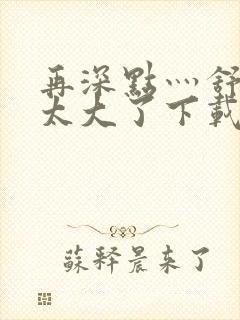 再深點灬舒
太大了下載
蘇释晨来了